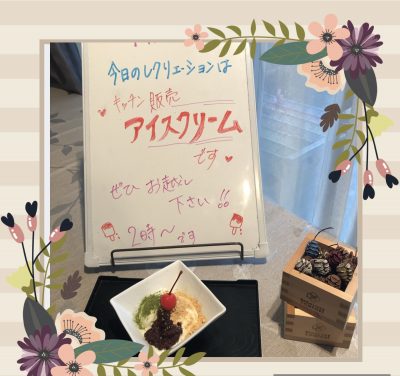 今日のレクリエーションは
キッチン販売
アイスクリーム
です
ぜひ お越し
下さい!!
2時〜です